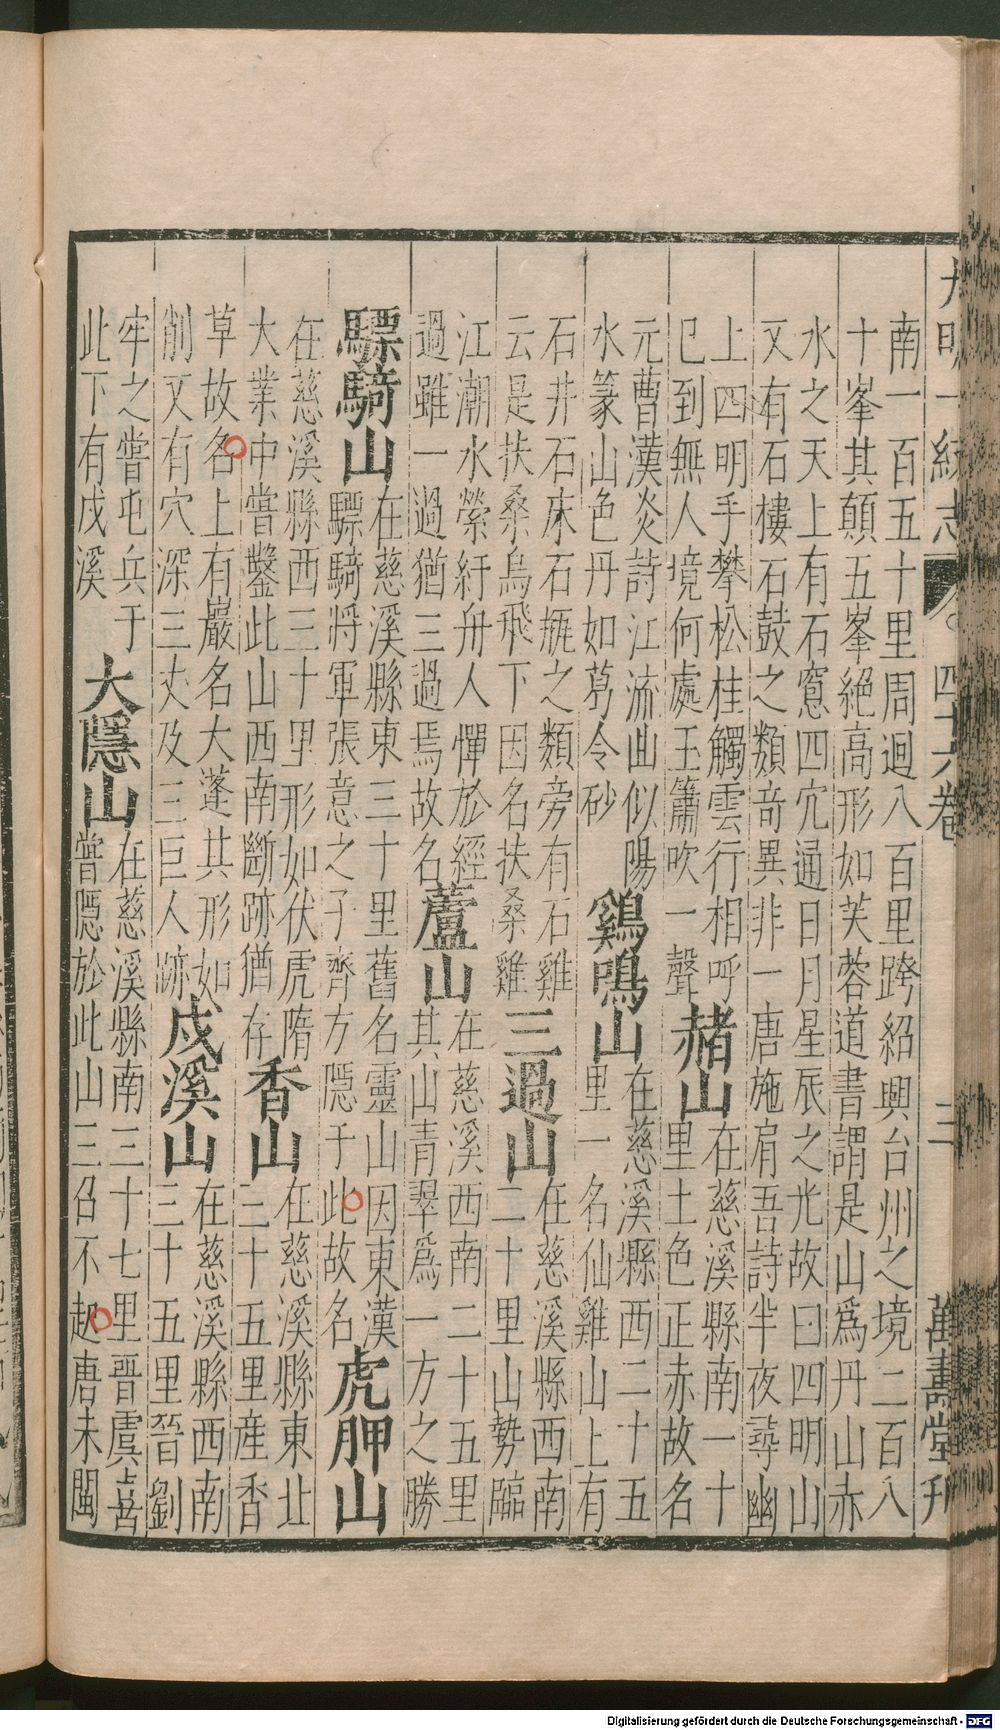 大明一統志 四十六卷 三 萬壽堂刋
南一百五十里周迴八百里跨紹興台州之境二百八
十峯其顛五峯絕高形如芙蓉道書謂是山爲丹山赤
水之天上有石窻四穴通日月星辰之光故曰四明山
又有石樓石鼓之類竒異非一唐施肩吾詩半夜尋幽
上四明手攀松桂觸雲行相呼
已到無人境何處玉簫吹一聲
赭山
在慈溪縣南一十
里土色正赤故名
元曹漢炎詩江流曲似陽
水篆山色丹如葛令砂
鷄鳴山
在慈溪縣西二十五
里一名仙雞山上有
石井石床石甁之類旁有石雞
云是扶桑烏飛下因名扶桑雞
三過山
在慈溪縣西南
二十里山勢臨
江潮水縈紆舟人憚於經
過雖一過猶三過焉故名
蘆山
在慈溪西南二十五里
其山青翠爲一方之勝
驃騎山
在慈溪縣東三十里舊名靈山因東漢
驃騎將軍張意之子齊方隱于此故名
虎胛山
在慈溪縣西三十里形如伏虎隋
大業中嘗鑿此山西南斷跡猶存
香山
在慈溪縣東北
三十五里產香
草故名上有巖名大蓬其形如
削又有穴深三丈及三巨人跡
戍溪山
在慈溪縣西南
三十五里晉劉
牢之嘗屯兵于
此下有戍溪
大隱山
在慈溪縣南三十七里晉虞喜
嘗隱於此山三召不起唐末閩
Digitalisierung gefördert durch die Deutsche Forschungsgemeinschaft - DFG